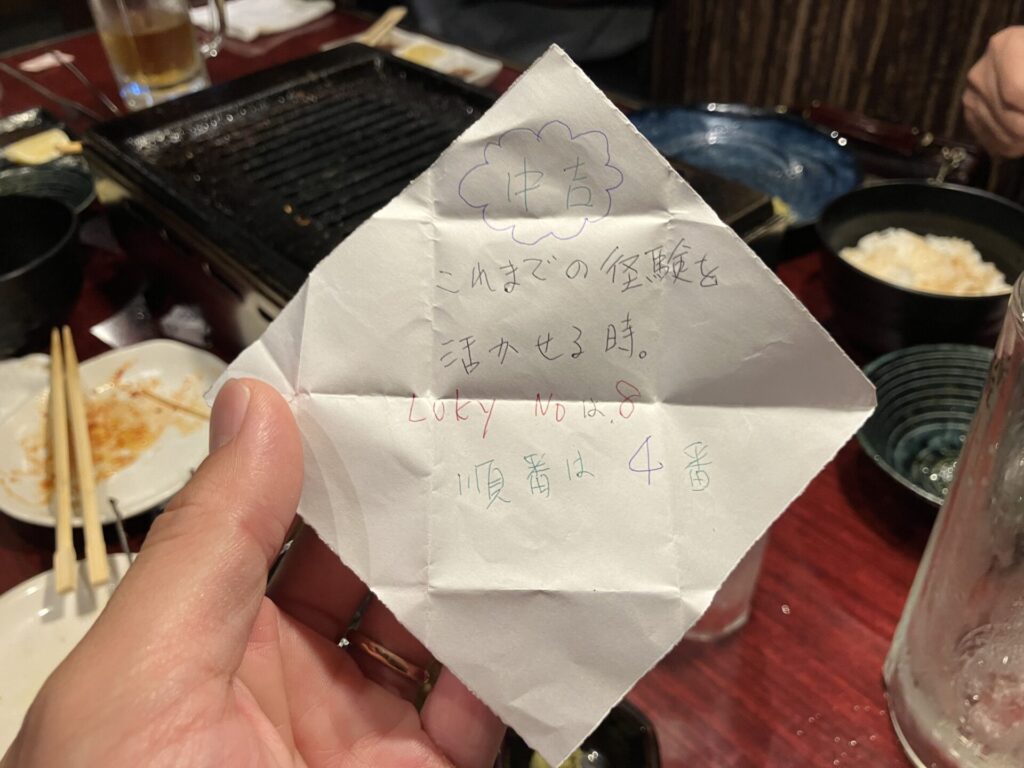 中吉
これまでの経験を
活かせる時。
Luky Noは.8
順番は 4 番